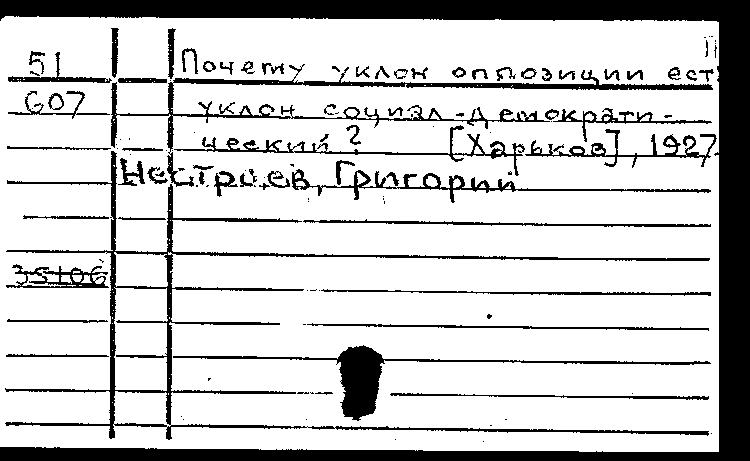 П
51 Почему уклон оппозиции ест
607 уклон социал-демократи-
ческий? [Харьков], 1927
Нестроев, Григорий
35106